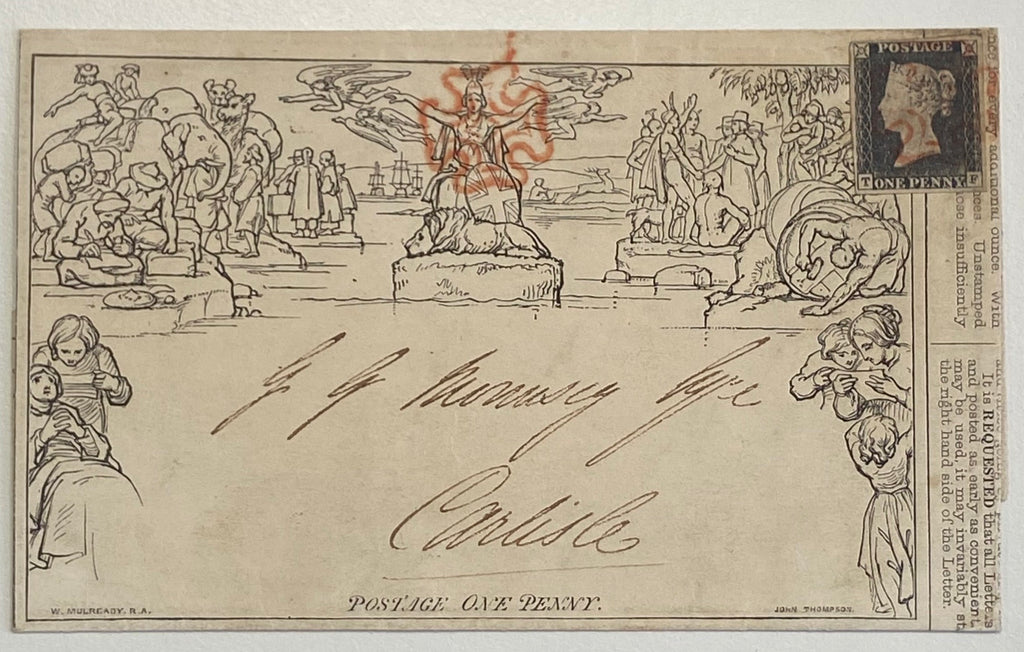 POSTAGE
T ONE PENNY F
G G Mounsey Esqre
Carlisle
POSTAGE ONE PENNY.
W. MULREADY. R.A.
JOHN THOMPSON.
additional ounce. With
Unstamped
insufficiently
It is REQUESTED that all Letters
and posted as early as convenient
may be used, it may invariably st
the right hand side of the Letter.